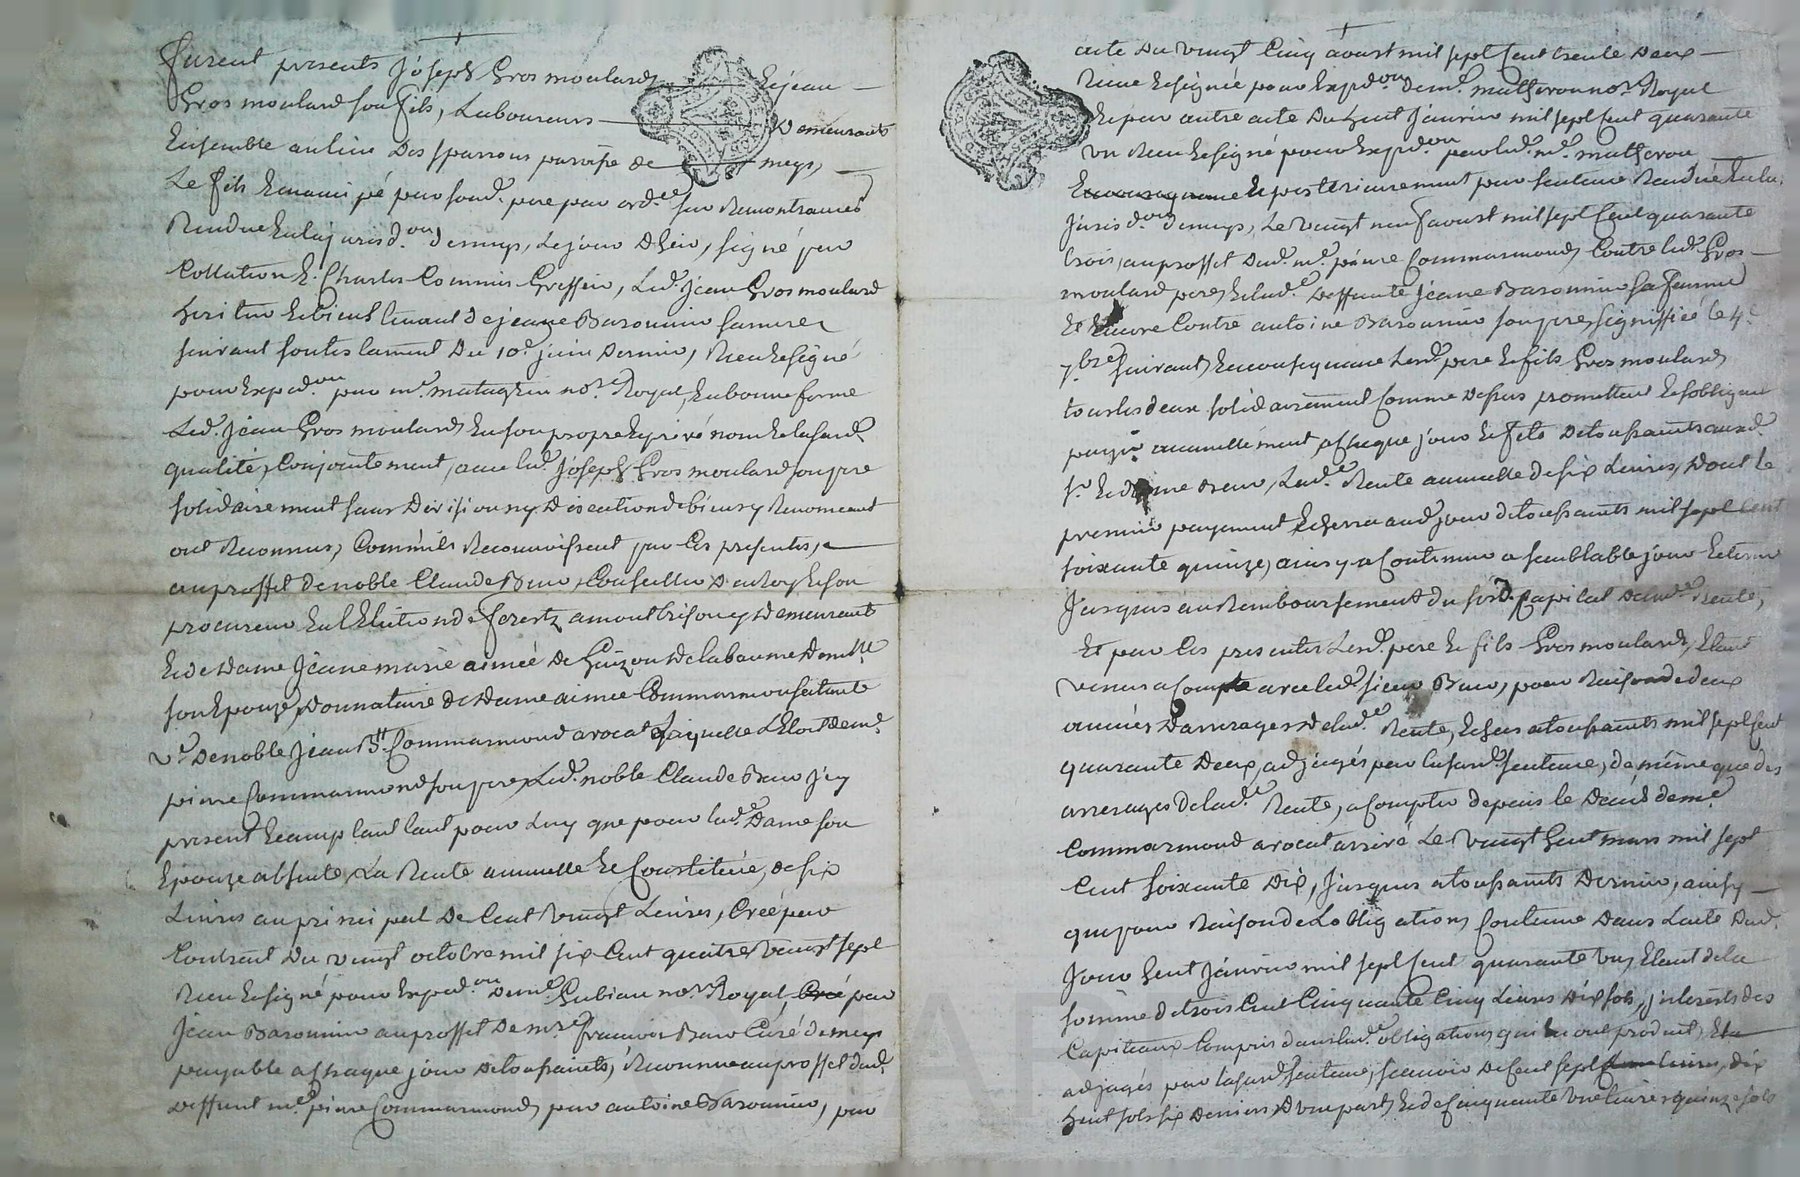 furent presents Joseph Gros moulard Et jean
Gros moulard son fils, Laboureurs Demeurants
Ensemble au lieu Des sparrons parroisse de meys,
Le fils Emancipé par sond. pere par ord.ce sur Remontrances
Rendue En la jurisd.on demeys, Le jour dhier, signé par
Collation E. Charles Commis Greffier, Led. Jean Gros moulard
heritier et bientenant de jeane Baronnier sa mere
suivant son testament Du 10.e juin Dernier, Receu Et signé
pour Exped.on par m.e matagrin no.re Royal, En bonne forme
Led. Jean Gros moulard En son propre Et privé nom Et la susd.
qualité, Conjointement, avec led. Joseph Gros moulard son pere
solidairement sans Division ny Discution de biens y Renonceant
ont Reconnus, Comm'ils Reconnoissent par Ces presentes,
au proffit de noble Claude Brun, Conseiller Du Roy Et son
procureur En l'Election de forestz a montbrison y Demeurant
Et de Dame Jeane marie aimeé De De labaume Dem.lle
son Epouze, Donnataire De Dame aimeé Commarmond
v.e De noble Jean B.te Commarmond avocat Laquelle L'Etoit de m.e
pierre Commarmond son pere, Led. noble Claude Brun Icy
present Et acceptant tant pour Luy que pour lad.e Dame son
Epouze absente, La Rente annuelle Et Constituée, de six
Livres au principal De Cent vingt Livres, Creé par
Contract Du vingt octobre mil six Cent quatre vingt sept
Receu Et signé pour Exped.on De m.e Gubian no.re Royal, par
Jean Baronnier au proffit De m.re francois Brun Curé de meys
payable a chaque jour de toussaints, Reconnue au proffit dud.
Deffunt m.e pierre Commarmond, par antoine Baronnier, par
acte Du vingt Cinq aoust mil sept Cent trente Deux
Receu Et signé pour Exped.on De m.e matheron no.re Royal
Et par autre acte Du huit Janvier mil sept Cent quarante
un Receu Et signé pour Exped.on par led. m.e matheron
Et posterieurement par sentence Rendue En la
Jurisd.on De meys, Le vingt neuf aoust mil sept Cent quarante
trois, au proffit Dud. m.e pierre Commarmond, Contre led. Gros
moulard pere, Et lad.e Deffunte Jeane Baronnier sa femme
Et Encore Contre antoine Baronnier son pere, signiffieé le 4.e
7.bre suivant, En consequence Lesd. pere Et fils Gros moulard,
tous les deux solidairement Comme Dessus promettent Et s'obligent
payer annuellement, a chaque jour Et fete De toussaints auxd.
s.r Et dame Brun, Lad.e Rente annuelle de six Livres, Dont le
premier payement Echerra aud. jour de toussaints mil sept Cent
soixante quinze, ainsy a Continuer a semblable jour Et terme
Jusques au Remboursement du sort Capital De lad.e Rente,
Et par Ces presentes Lesd. pere Et fils Gros moulard, Etant
venus a Compte avec led. sieur Brun, pour Raison de deux
années D'arrerages De lad.e Rente, Echeus a toussaints mil sept Cent
quarante Deux, adjugés par la susd. sentence, de même que des
arrerages De lad.e Rente, a Compter depuis le Décés de m.e
Commarmond avocat arrivé Le vingt huit mars mil sept
Cent soixante Dix, Jusques a toussaints Dernier, ainsy
que pour Raison de L'obligation, Contenue Dans L'acte Dud.
Jour huit Janvier mil sept Cent quarante un, Etant de la
somme de trois Cent Cinquante Cinq Livres Dix sols, jnterests des
Capiteaux Compris dans lad.e obligation, qui En ont produit,
adjugés par la susd. sentence, scavoir De Cent sept livres, dix
huit sols six Deniers D'une part, Et de Cinquante une livres quinze sols